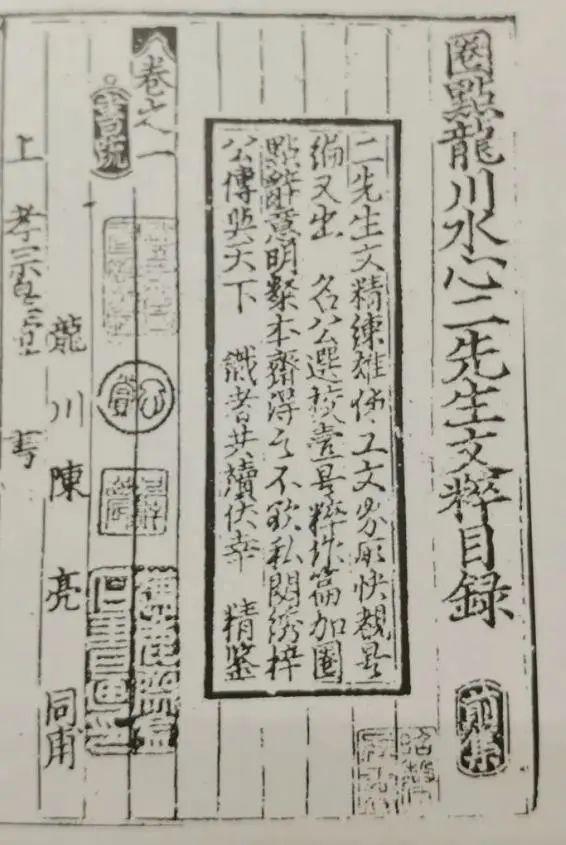 圈點龍川水心二先生文粹目録
前集
二先生文精練雄偉工文者願快覩是
編又出　名公選校壹是粹玳篇加圈
點辭意明粲本齋得之不欲私閟綉梓
公傳與天下　識者共讀伏幸　精鑒
卷之一
書疏
龍川陳　亮　同甫
上　孝宗皇帝　書